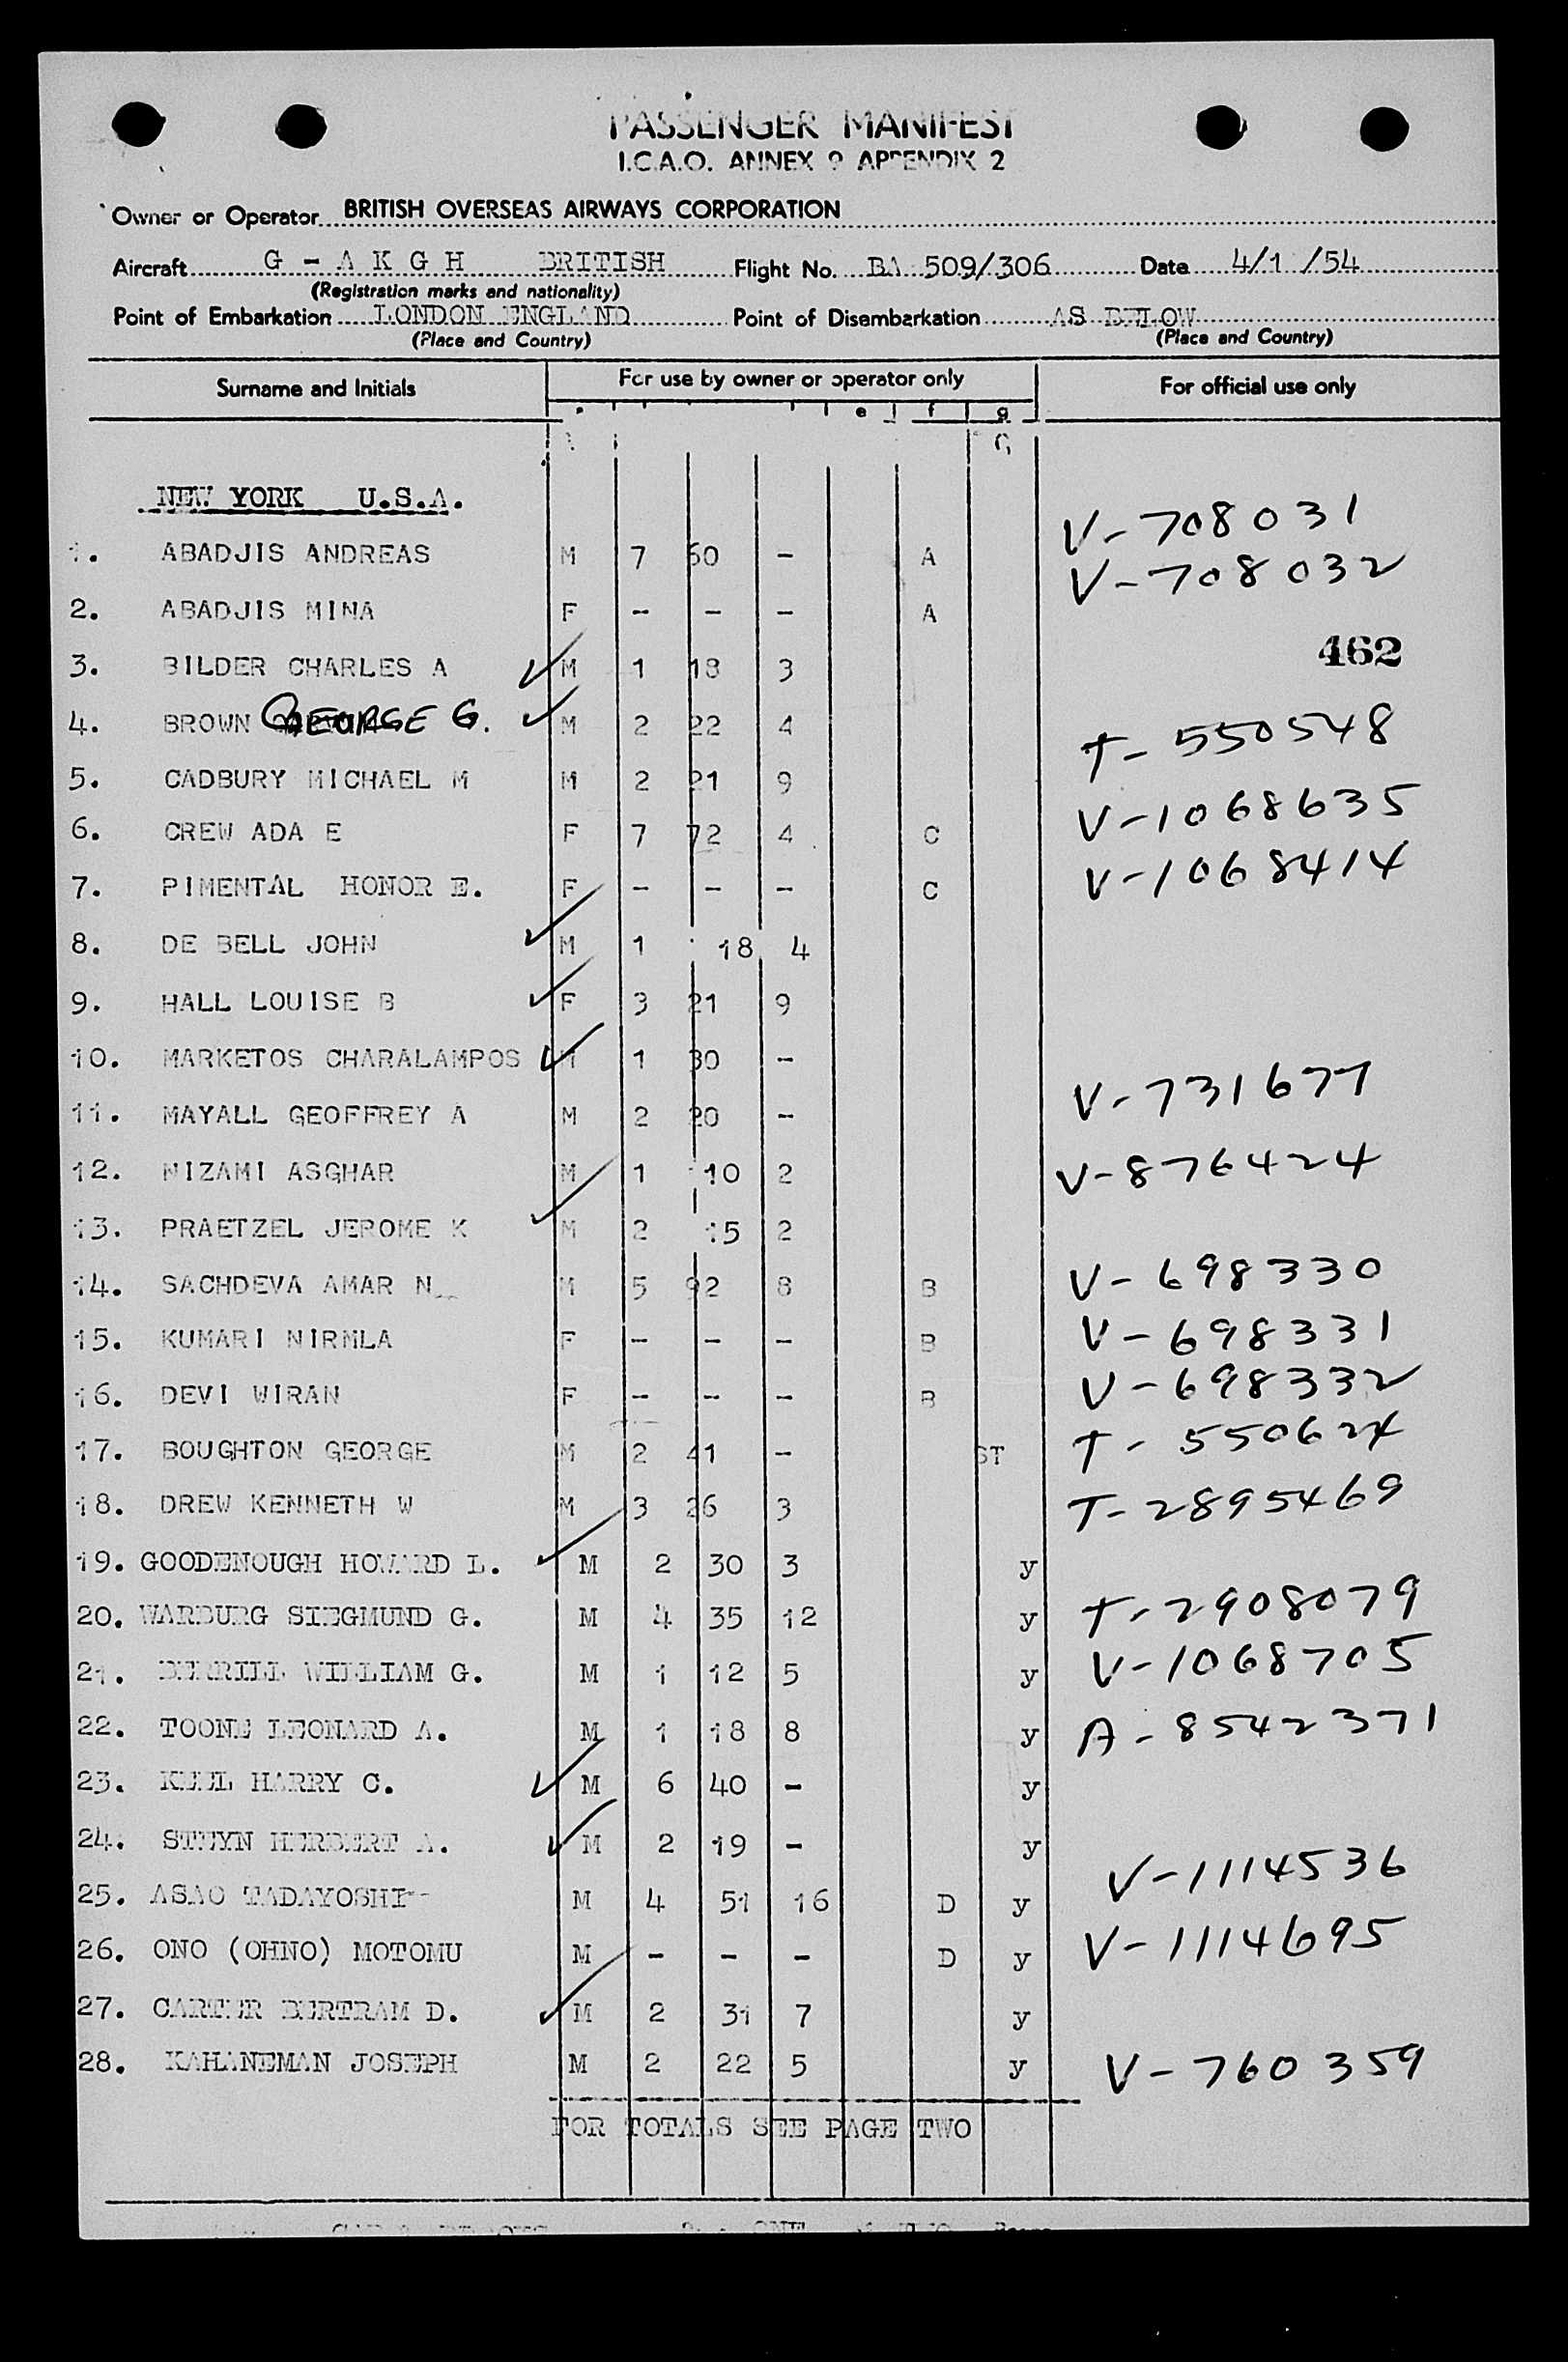 PASSENGER MANIFEST
I.C.A.O. ANNEX 9 APPENDIX 2
Owner or Operator BRITISH OVERSEAS AIRWAYS CORPORATION
Aircraft G - A K G H BRITISH Flight No. BA 509/306 Date 4/1 /54
(Registration marks and nationality)
Point of Embarkation LONDON ENGLAND Point of Disembarkation AS BELOW
(Place and Country) (Place and Country)
Surname and Initials For use by owner or operator only For official use only
e f g
G
NEW YORK U.S.A.
V-708031
1. ABADJIS ANDREAS M 7 60 - A
V-708032
2. ABADJIS MINA F - - - A
462
3. BILDER CHARLES A ✓ M 1 18 3
4. BROWN GEORGE G. ✓ M 2 22 4 T-550548
5. CADBURY MICHAEL M M 2 21 9 V-1068635
6. CREW ADA E F 7 72 4 C V-1068414
7. PIMENTAL HONOR E. F - - - C
8. DE BELL JOHN ✓ M 1 18 4
9. HALL LOUISE B ✓ F 3 21 9
10. MARKETOS CHARALAMPOS ✓ M 1 30 -
11. MAYALL GEOFFREY A M 2 20 - V-731677
12. NIZAMI ASGHAR M 1 10 2 V-876424
13. PRAETZEL JEROME K ✓ M 2 15 2
14. SACHDEVA AMAR N M 5 92 8 B V-698330
15. KUMARI NIRMLA F - - - B V-698331
16. DEVI WIRAN F - - - B V-698332
17. BOUGHTON GEORGE M 2 41 - ST T-550624
18. DREW KENNETH W M 3 26 3 T-2895469
19. GOODENOUGH HOWARD L. ✓ M 2 30 3 y
20. WARBURG SIEGMUND G. M 4 35 12 y T-2908079
21. DERRILL WILLIAM G. M 1 12 5 y V-1068705
22. TOONE LEONARD A. M 1 18 8 y A-8542371
23. KEEL HARRY C. ✓ M 6 40 - y
24. STEYN HERBERT A. ✓ M 2 19 - y
25. ASAO TADAYOSHI M 4 51 16 D y V-1114536
26. ONO (OHNO) MOTOMU M - - - D y V-1114695
27. CARTER BERTRAM D. ✓ M 2 31 7 y
28. KAHANEMAN JOSEPH M 2 22 5 y V-760359
FOR TOTALS SEE PAGE TWO